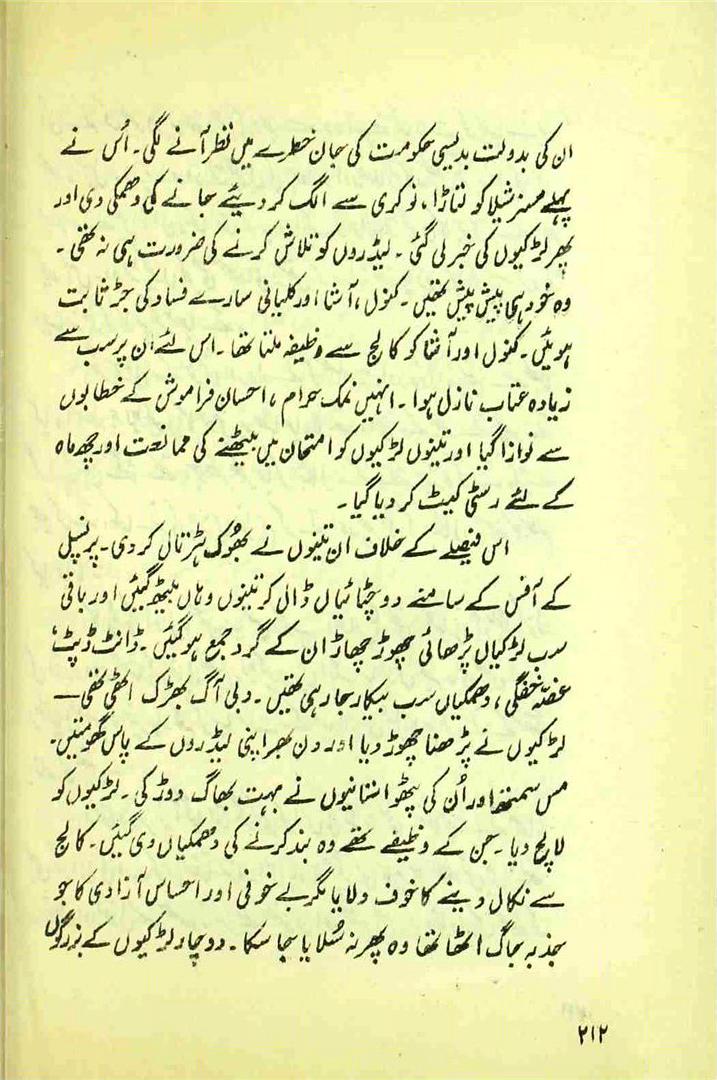 ان کی بدولت بدیسی حکومت کی جان خطرے میں نظر آنے لگی۔ اُس نے
پہلے مسز شیلا کو لتاڑا، نوکری سے الگ کر دیئے جانے کی دھمکی دی اور
پھر لڑکیوں کی خبر لی گئی۔ لیڈروں کو تلاش کرنے کی ضرورت ہی نہ تھی۔
وہ خود ہی پیش پیش تھیں۔ کنول، آشا اور کلیانی سارے فساد کی جڑ ثابت
ہوئیں۔ کنول اور آشا کو کالج سے وظیفہ ملتا تھا۔ اس لئے ان پر سب سے
زیادہ عتاب نازل ہوا۔ انہیں نمک حرام، احسان فراموش کے خطابوں
سے نوازا گیا اور تینوں لڑکیوں کو امتحان میں بیٹھنے کی ممانعت اور چھ ماہ
کے لئے رسٹی کیٹ کر دیا گیا۔
اس فیصلے کے خلاف ان تینوں نے بھُوک ہڑتال کر دی۔ پرنسپل
کے آفس کے سامنے دو چٹائیاں ڈال کر تینوں وہاں بیٹھ گئیں اور باقی
سب لڑکیاں پڑھائی چھوڑ چھاڑ ان کے گرد جمع ہو گئیں۔ ڈانٹ ڈپٹ،
غصّہ خفگی، دھمکیاں سب بیکار جا رہی تھیں۔ دبی آگ بھڑک اٹھی تھی —
لڑکیوں نے پڑھنا چھوڑ دیا اور دن بھر اپنی لیڈروں کے پاس گھومتیں۔
مس سمتھ اور اُن کی پٹھو استانیوں نے بہت بھاگ دوڑ کی۔ لڑکیوں کو
لالچ دیا۔ جن کے وظیفے تھے وہ بند کرنے کی دھمکیاں دی گئیں۔ کالج
سے نکال دینے کا خوف دلایا مگر بے خوفی اور احساس آزادی کا جو
جذبہ جاگ اٹھا تھا وہ پھر نہ سُلایا جا سکا۔ دو چار لڑکیوں کے بزرگوں
۲۱۲